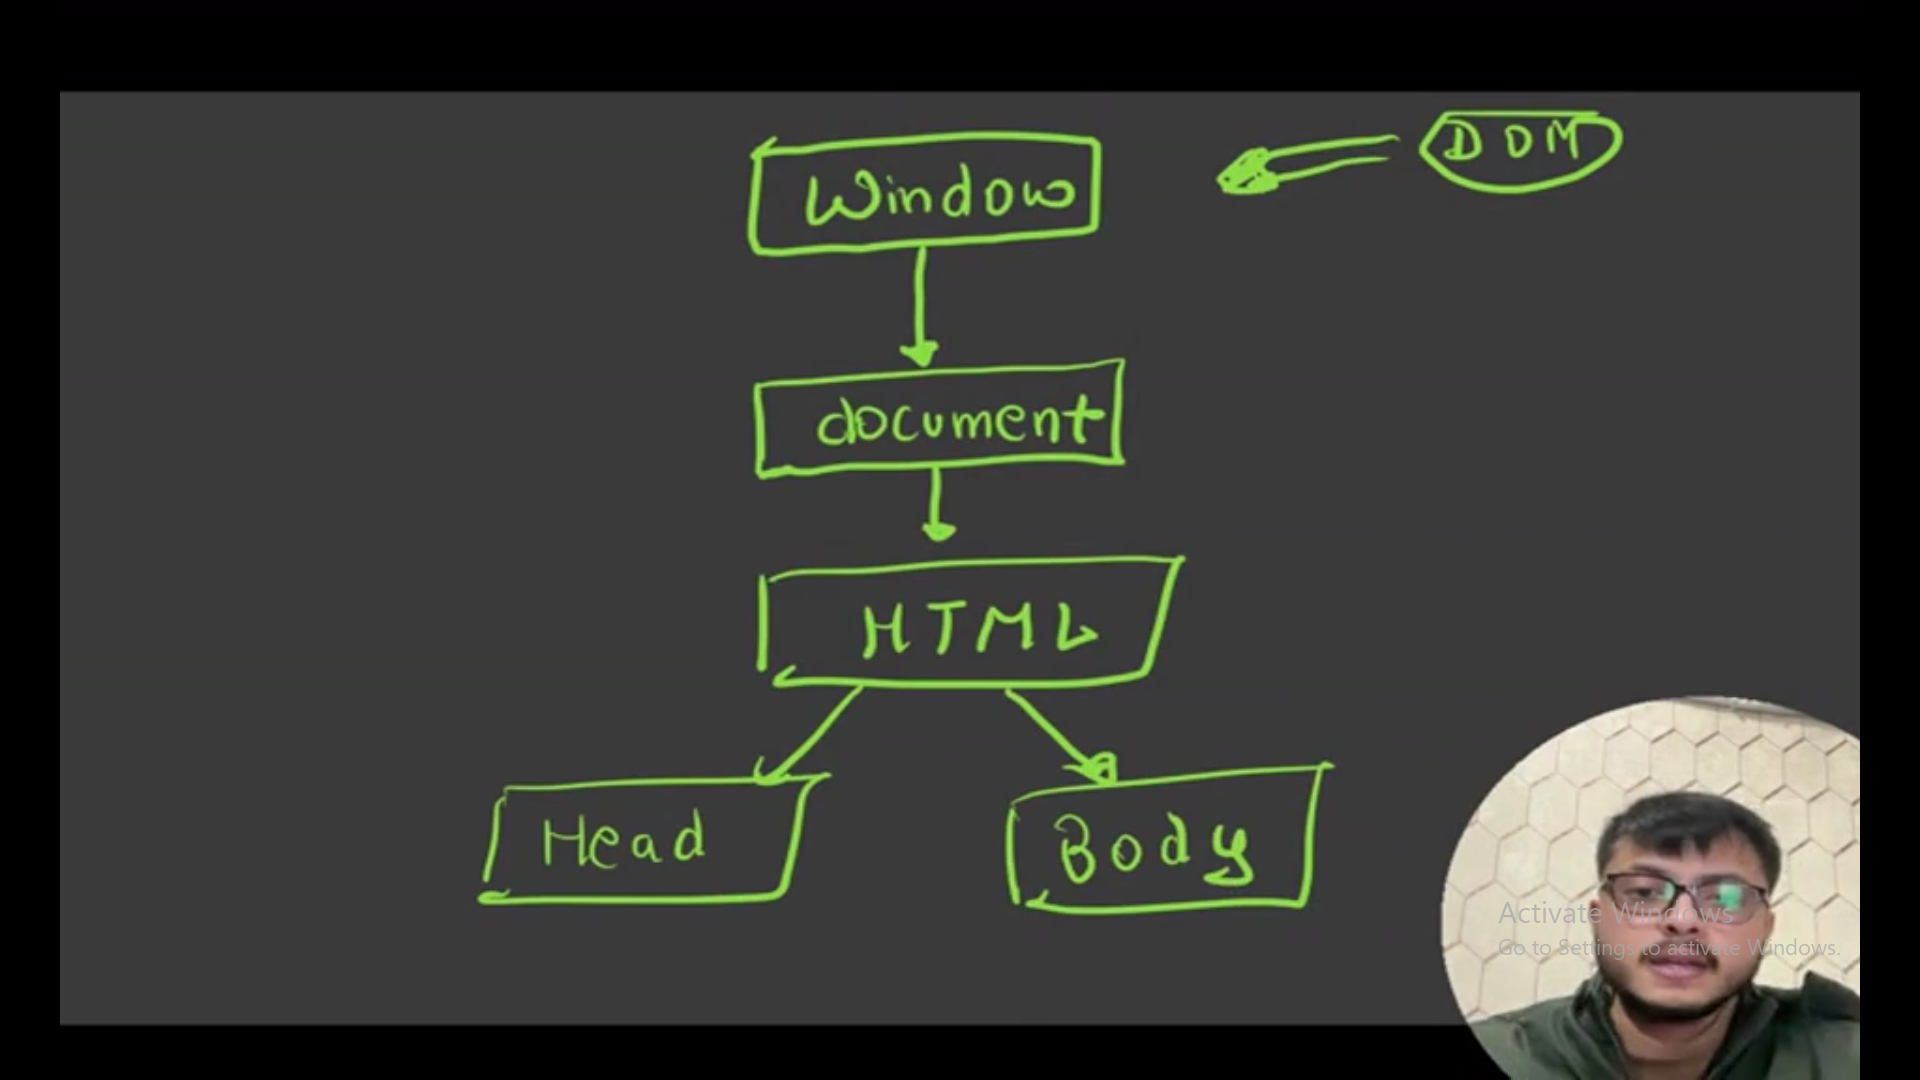 Window
DOM
document
HTML
Head
Body
Activate Windows
Go to Settings to activate Windows.